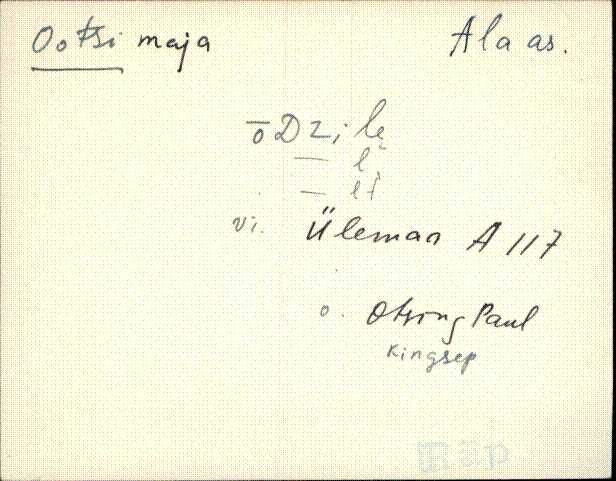 Ootsi maja Ala as.
ōDz, lę
— l
— lt
vi. Ülemaa A 117
o. Otsing Paul
Kingsep